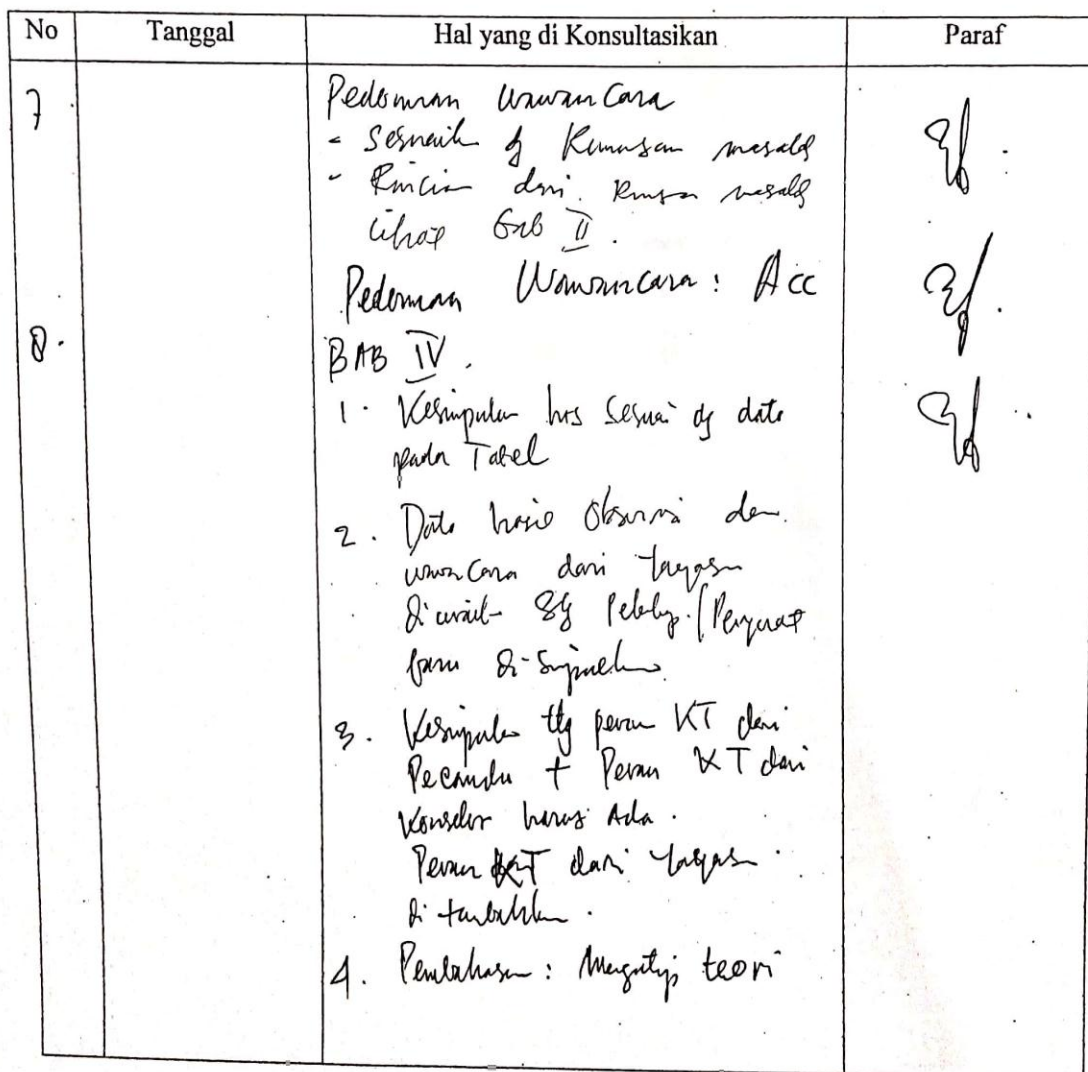 No Tanggal Hal yang di Konsultasikan Paraf
7. Pedoman Wawancara
- Sesuaik dg Rumusan masalah
- Rincian dari Rumusan masalah
lihat Bab II.
Pedoman Wawancara : Acc
8. BAB IV.
1. Kesimpulan hrs Sesuai dg data
pada Tabel
2. Data hasil Observasi dan
wawancara dari
di
baru di-Simpulkan
3. Kesimpulan ttg peran KT dari
Pecandu + Peran KT dari
Konselor harus Ada.
Peran KT dari
di tambahkan.
4. Pembahasan : Mengutip teori